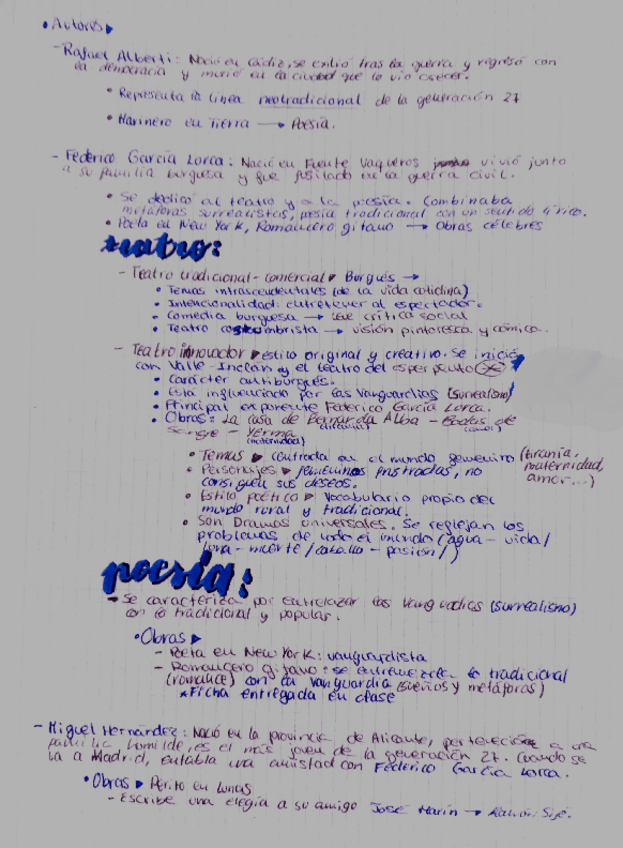 • Autores ▶
- Rafael Alberti: Nació en Cádiz, se exilió tras la guerra y regresó con
la democracia y murió en la ciudad que lo vio crecer.
• Representa la línea neotradicional de la generación 27
• Marinero en Tierra → Poesía.
- Federico García Lorca: Nació en Fuente Vaqueros vivió junto
a su familia burguesa y fue fusilado en la guerra civil.
• Se dedicó al teatro y a la poesía. Combinaba
metáforas surrealistas, poesía tradicional con un sentido lírico.
• Poeta en New York, Romancero gitano → Obras célebres
teatro:
- Teatro tradicional-comercial ▶ Burgués →
• Temas intrascendentales (de la vida cotidina)
• Intencionalidad: entretener al espectador.
• Comedia burguesa → leve crítica social
• Teatro costumbrista → visión pintoresca y cómica.
- Teatro innovador ▶ estilo original y creativo. Se inició
con Valle-Inclán y el teatro del esperpento
• Carácter antiburgués.
• Está influenciado por las Vanguardias (surrealismo)
• Principal exponente Federico García Lorca.
• Obras: La casa de Bernarda Alba - Bodas de
Sangre - Yerma (amor)
(maternidad)
• Temas ▶ centrada en el mundo femenino (tiranía,
maternidad,
amor...)
• Personajes ▶ femeninos frustradas, no
consiguen sus deseos.
• Estilo poético ▶ Vocabulario propio del
mundo rural y tradicional.
• Son Dramas universales. Se reflejan los
problemas de todo el mundo (agua - vida/
luna - muerte / caballo - pasión/)
poesía:
- Se caracteriza por entrelazar las vanguadias (surrealismo)
con lo tradicional y popular.
• Obras ▶
- Poeta en New York: vanguardista
- Romancero gitano: se entremezcla lo tradicional
(romance) con la vanguardia (sueños y metáforas)
* Ficha entregada en clase
- Miguel Hernández: Nació en la provincia de Alicante, pertenecie a una
familia humilde, es el más joven de la generación 27. Cuando se
va a Madrid, entabla una amistad con Federico García Lorca.
• Obras ▶ Perito en lunas
- Escribe una elegía a su amigo José Marín → Ramón Sijé.